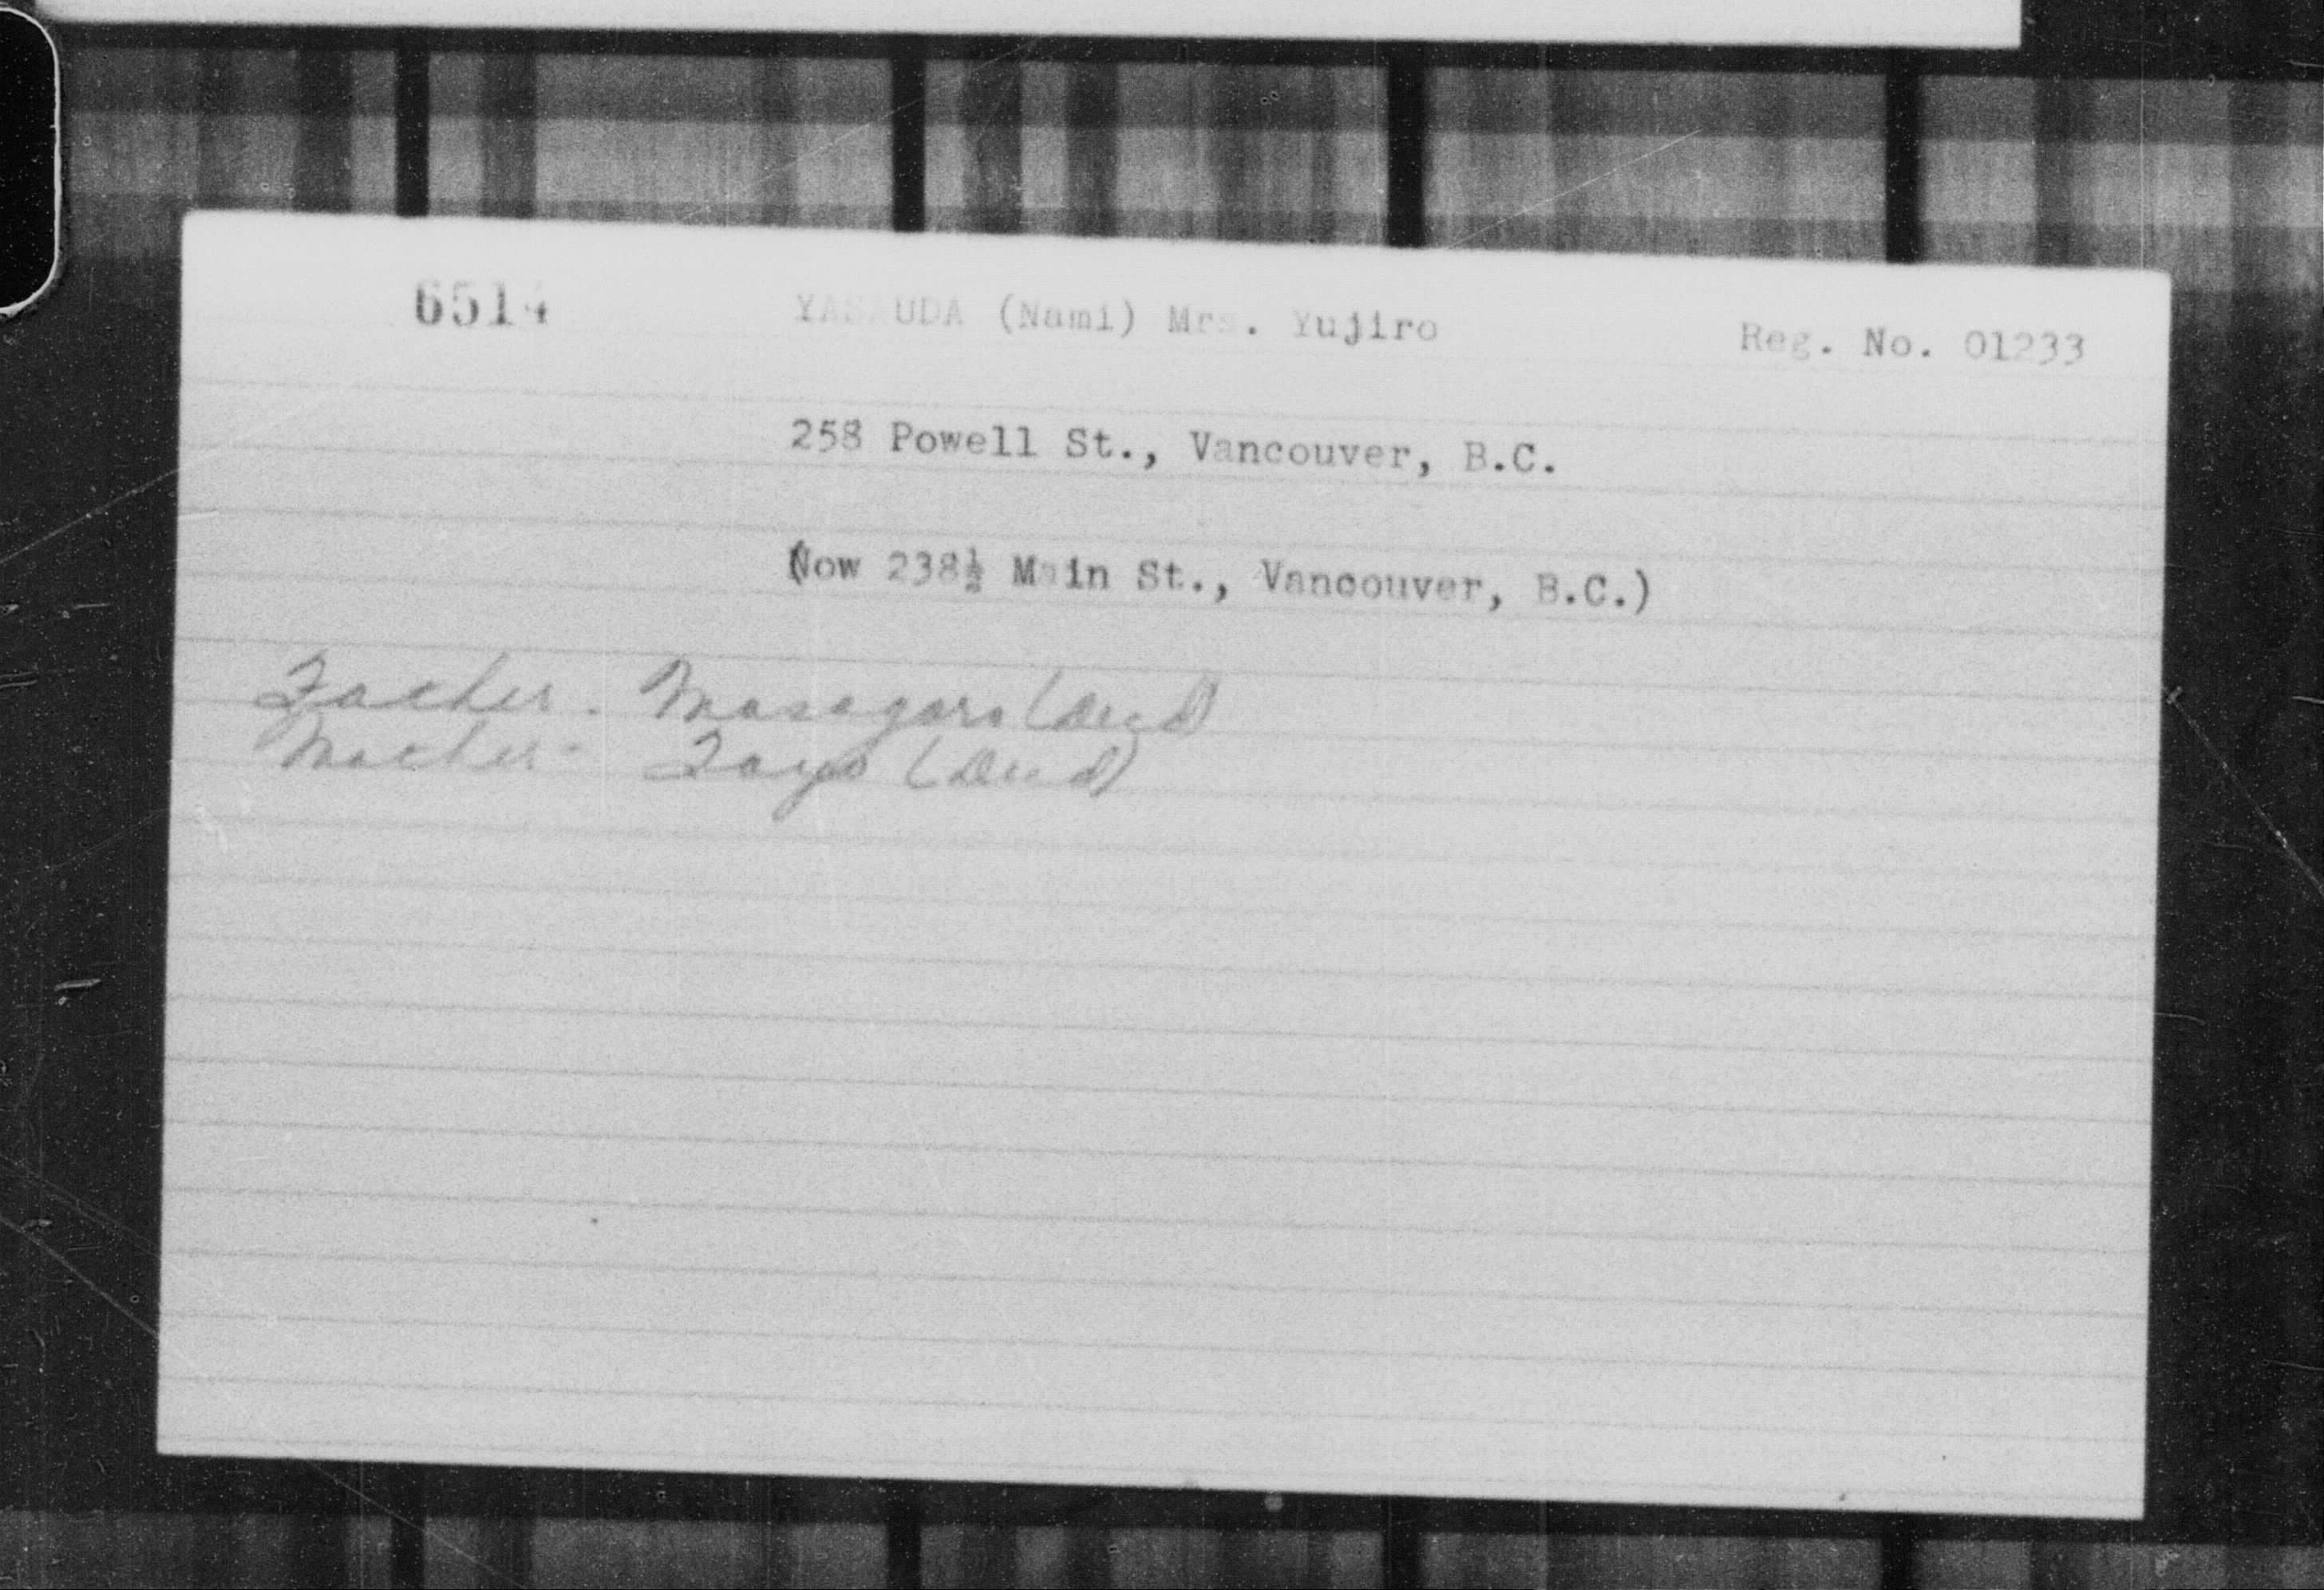 6514 YASAUDA (Nami) Mrs. Yujiro Reg. No. 01233
258 Powell St., Vancouver, B.C.
(Now 238½ Main St., Vancouver, B.C.)
Father. Masagoro (Decd)
Mother - Toyo (Decd)